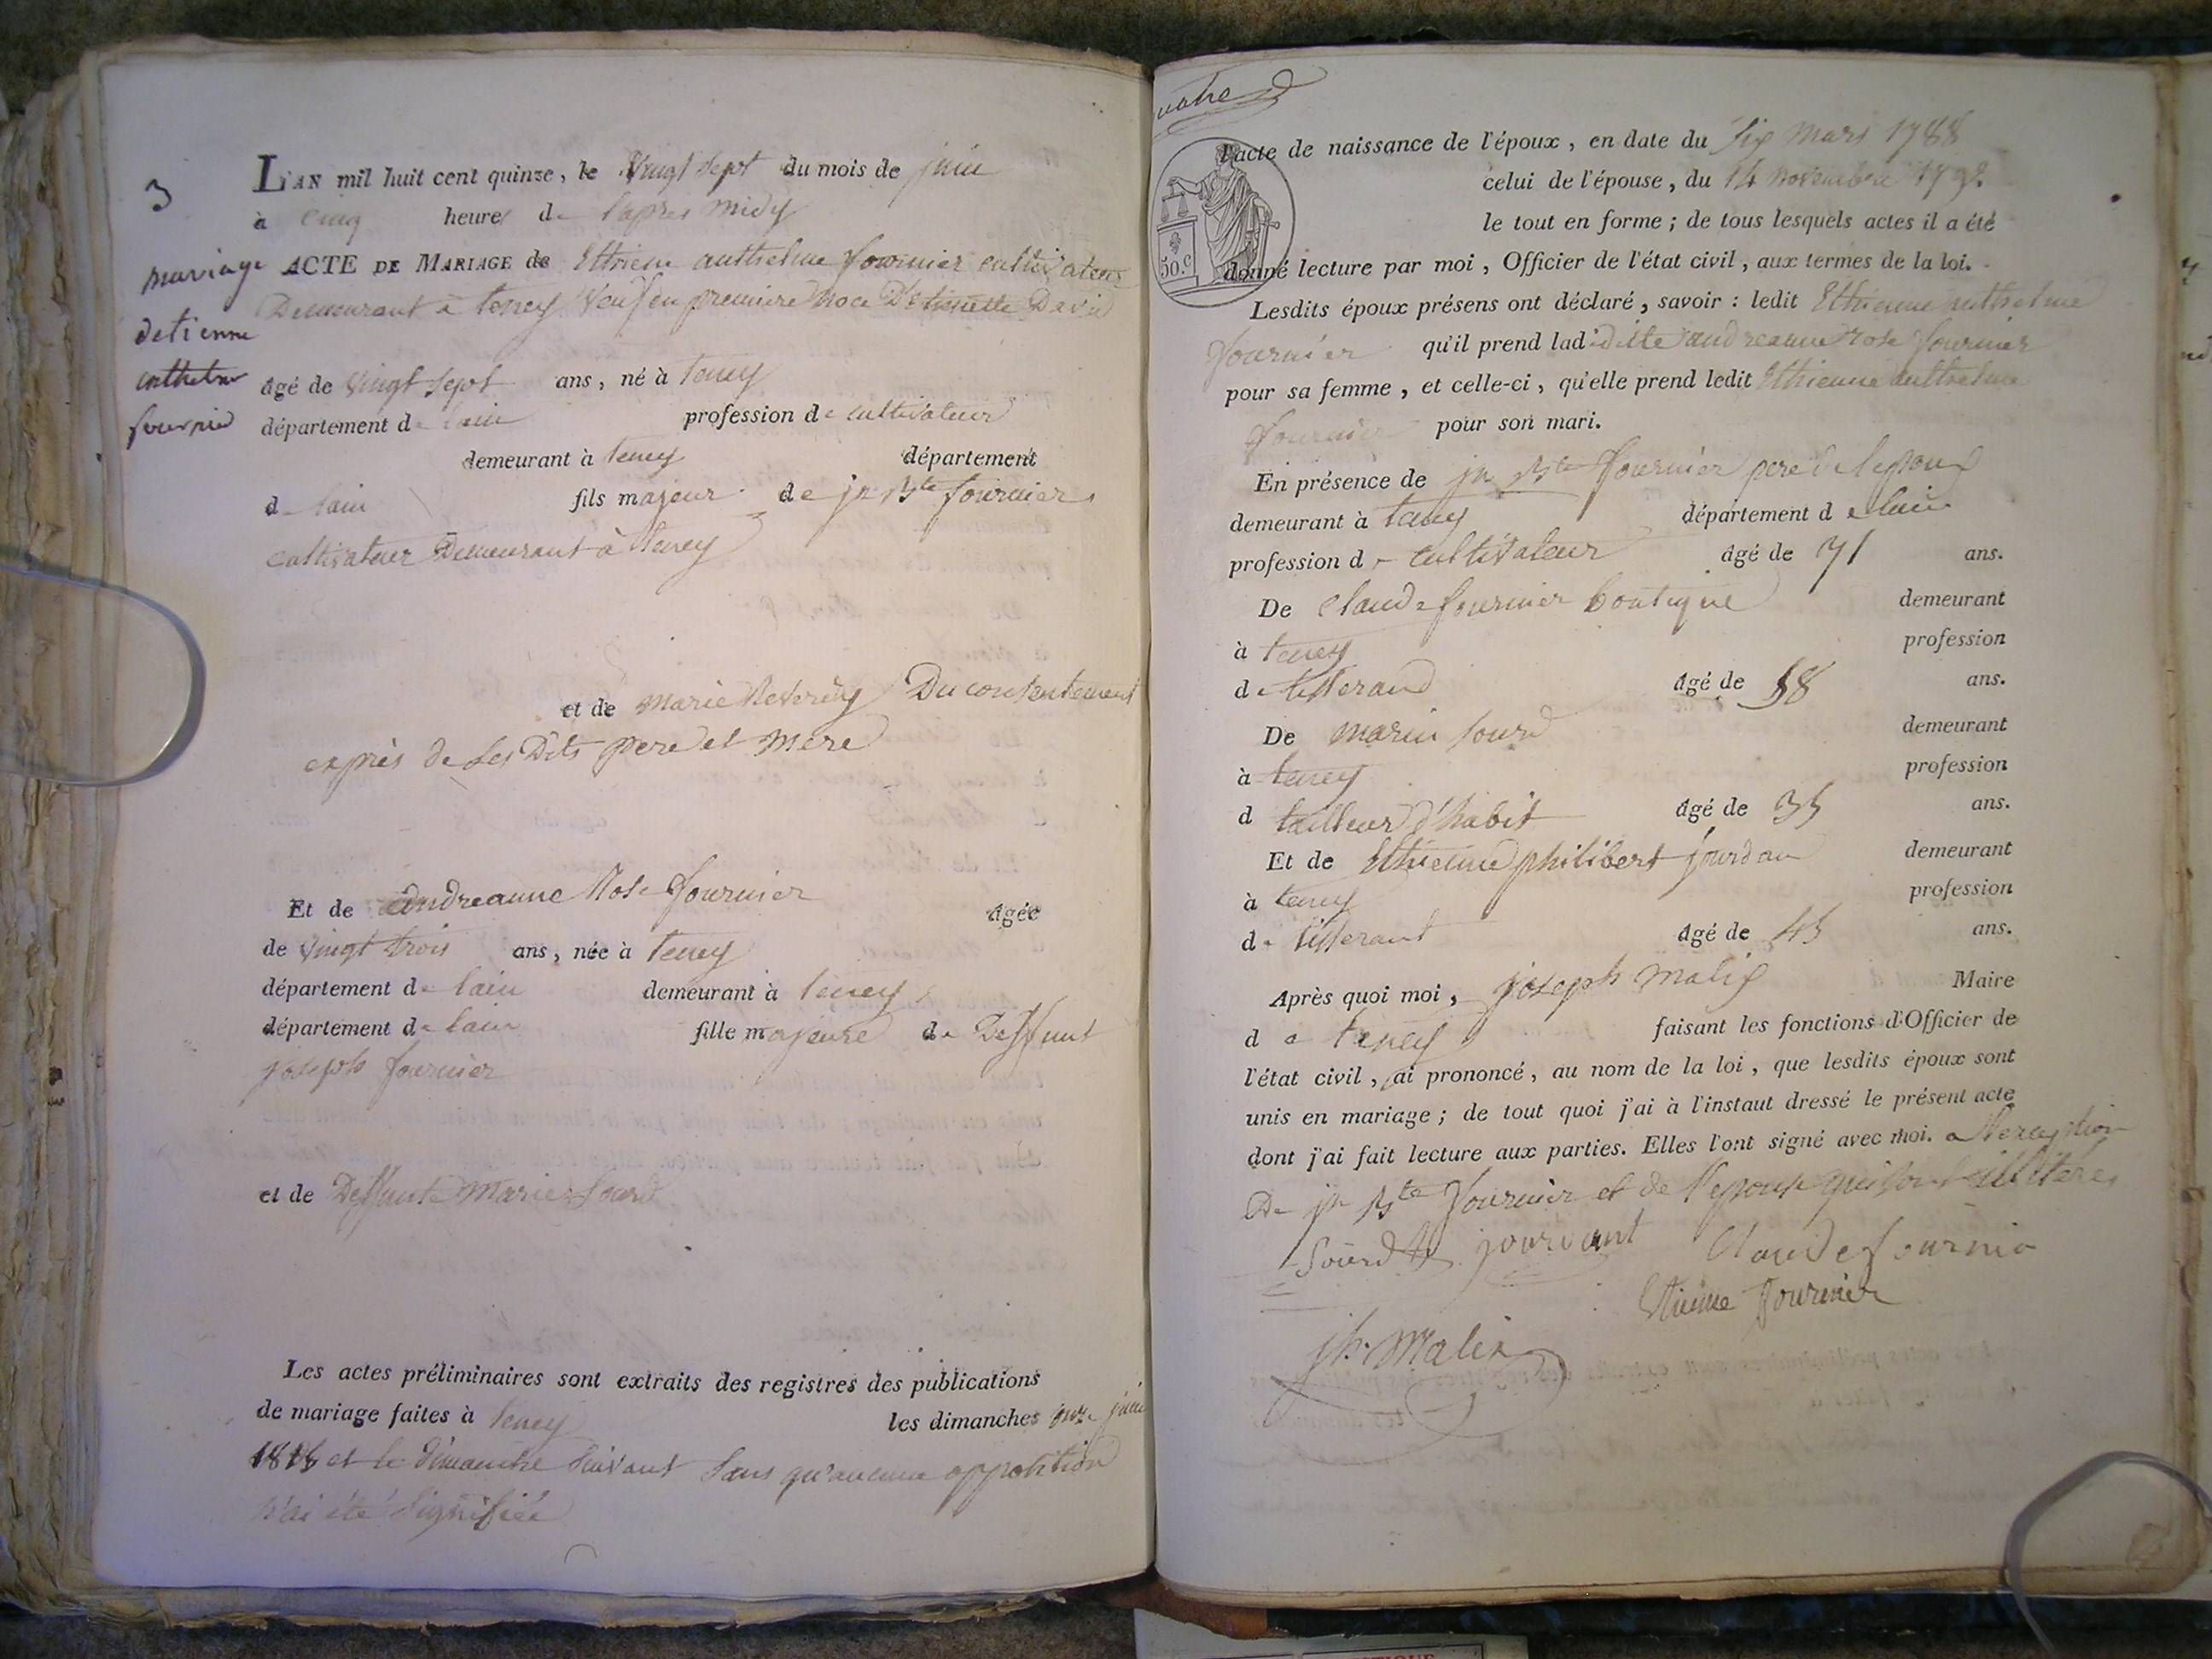 3
mariage
detienne
anthelme
fournier
L'AN mil huit cent quinze, le vingt sept du mois de juin
à cinq heures de l'apres midy
ACTE DE MARIAGE de Ethienne anthelme fournier cultivateur
Demeurant à teney veuf en premiere noce D'étiennette David
âgé de vingt sept ans, né à teney
département de lain profession de cultivateur
demeurant à teney département
de lain fils majeur de jn Bte fournier
cultivateur Demeurant à teney
et de marie Reverdy Du contentement
exprès de ses Dits pere et mere
Et de andreanne Rose fournier âgée
de vingt trois ans, née à teney
département de lain demeurant à teney
département de lain fille majeure de Deffunt
joseph fournier
et de Deffunte marie Sourd
Les actes préliminaires sont extraits des registres des publications
de mariage faites à teney les dimanches onze juin
1815 et le dimanche suivant sans qu'aucune opposition
n'ai été signifiée
L'acte de naissance de l'époux, en date du six mars 1788
celui de l'épouse, du 14 novembre
le tout en forme; de tous lesquels actes il a été
50.c
donné lecture par moi, Officier de l'état civil, aux termes de la loi.
Lesdits époux présens ont déclaré, savoir: ledit Ethienne anthelme
fournier qu'il prend ladditte andreanne rose fournier
pour sa femme, et celle-ci, qu'elle prend ledit Ethienne anthelme
fournier pour son mari.
En présence de jn Bte fournier pere de lepoux
demeurant à teney département de lain
profession de cultivateur âgé de 71 ans.
De Claude fournier boutique demeurant
à teney profession
de tisserand âgé de 58 ans.
De marin sourd demeurant
à teney profession
d tailleur d'habit âgé de 35 ans.
Et de Ethienne philibert jourdan demeurant
à teney profession
de tisserant âgé de 45 ans.
Après quoi moi, joseph malix Maire
de teney faisant les fonctions d'Officier de
l'état civil, ai prononcé, au nom de la loi, que lesdits époux sont
unis en mariage; de tout quoi j'ai à l'instaut dressé le présent acte
dont j'ai fait lecture aux parties. Elles l'ont signé avec moi. a l'exception
De jn Bte fournier et de l'epouse qui sont illiteres
Sourd jourdant Claude fournie
Etienne fournier
jh. Malix